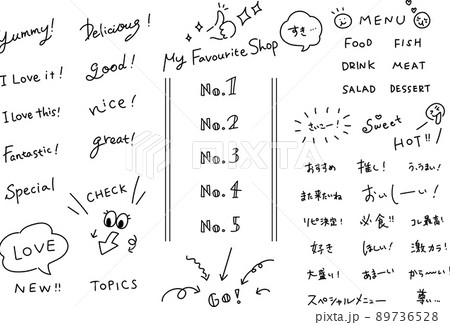 Yummy!
Delicious!
I Love it!
good!
I Love this!
nice!
Fantastic!
great!
Special
CHECK
LOVE
NEW!!
TOPICS
My Favourite Shop
No.1
No.2
No.3
No.4
No.5
GO!
すき…
MENU
FOOD FISH
DRINK MEAT
SALAD DESSERT
さいこー!
Sweet
HOT!!
おすすめ 推し! う、うまい!
また来たいね おいしーい!
リピ決定! 必食!! コレ最高!
好き ほしい! 激カラ!
大盛り! あまーい から〜い!
スペシャルメニュー 尊い…
PIXTA
pixta.jp - 89736528